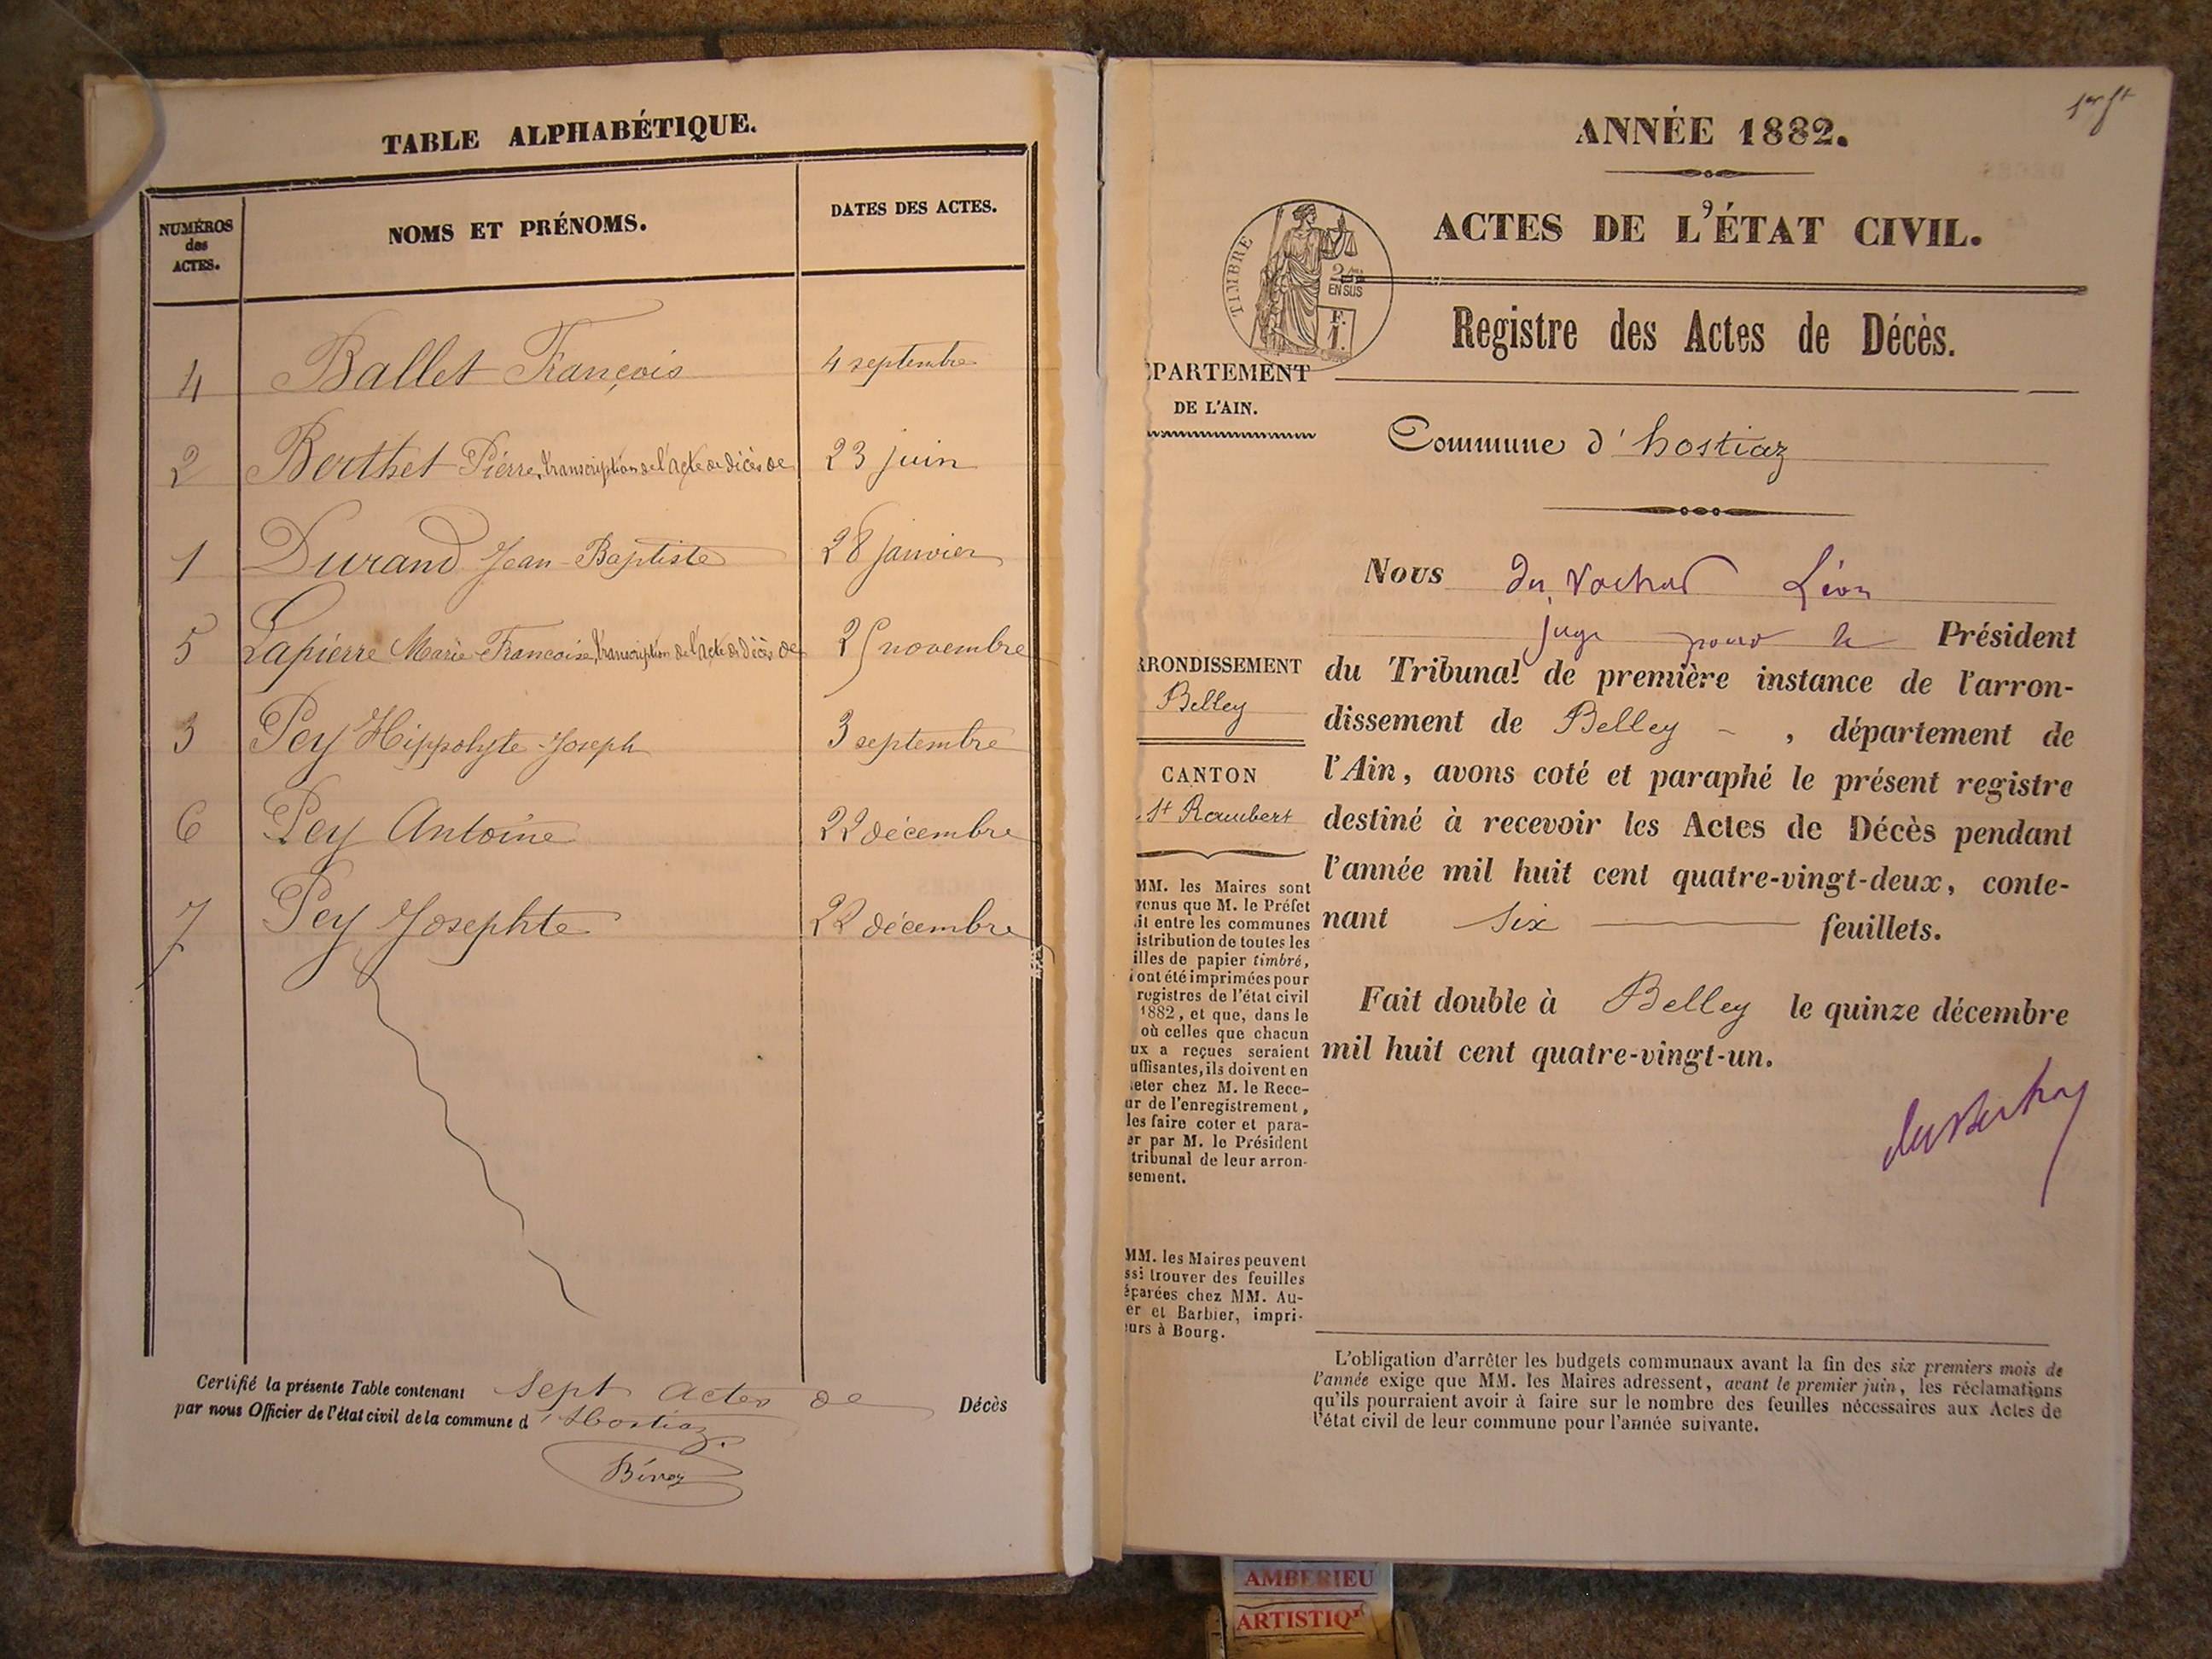 TABLE ALPHABÉTIQUE.
NUMÉROS des ACTES.
NOMS ET PRÉNOMS.
DATES DES ACTES.
4 Ballet François 4 septembre
2 Berthet Pierre, transcription de l'acte de décès de 23 juin
1 Durand Jean-Baptiste 28 janvier
5 Lapierre Marie Francoise, transcription de l'acte de décès de 25 novembre
3 Pey Hippolyte-Joseph 3 septembre
6 Pey Antoine 22 décembre
7 Pey Josephte 22 décembre
Certifié la présente Table contenant sept actes de Décès
par nous Officier de l'état civil de la commune d'Hostiaz.
1er ft
ANNÉE 1882.
ACTES DE L'ÉTAT CIVIL.
TIMBRE
2/10es EN SUS
F. 1.
Registre des Actes de Décès.
ÉPARTEMENT
DE L'AIN.
Commune d'hostiaz
Nous Léon
juge pour le Président
du Tribunal de première instance de l'arron-
dissement de Belley - , département de
l'Ain, avons coté et paraphé le présent registre
destiné à recevoir les Actes de Décès pendant
l'année mil huit cent quatre-vingt-deux, conte-
nant six feuillets.
Fait double à Belley le quinze décembre
mil huit cent quatre-vingt-un.
RRONDISSEMENT
Belley
CANTON
St Rambert
MM. les Maires sont
venus que M. le Préfet
it entre les communes
istribution de toutes les
illes de papier timbré,
i ont été imprimées pour
registres de l'état civil
1882, et que, dans le
où celles que chacun
ux a reçues seraient
uffisantes, ils doivent en
eter chez M. le Rece-
ur de l'enregistrement,
les faire coter et para-
er par M. le Président
tribunal de leur arron-
sement.
MM. les Maires peuvent
ssi trouver des feuilles
éparées chez MM. Au-
er et Barbier, impri-
eurs à Bourg.
L'obligation d'arrêter les budgets communaux avant la fin des six premiers mois de
l'année exige que MM. les Maires adressent, avant le premier juin, les réclamations
qu'ils pourraient avoir à faire sur le nombre des feuilles nécessaires aux Actes de
l'état civil de leur commune pour l'année suivante.
AMBERIEU
ARTISTIQ